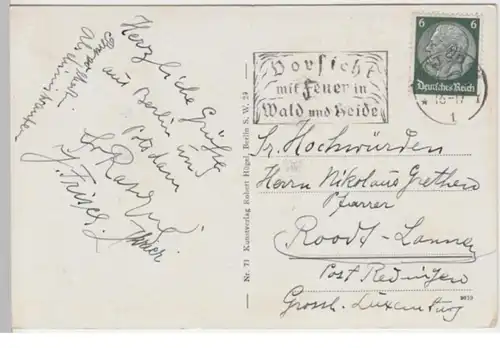 Herzliche Grüße
aus Berlin und
Potsdam
Nr. 71 Kunstverlag Robert Hügel, Berlin S. W. 29
Vorsicht
mit Feuer in
Wald und Heide
6 6
Deutsches Reich
16-17
1
Sr. Hochwürden
Herrn Nikolaus Grethen
Pfarrer
Roodt-Lannen
Post Redingen
Grossh. Luxemburg